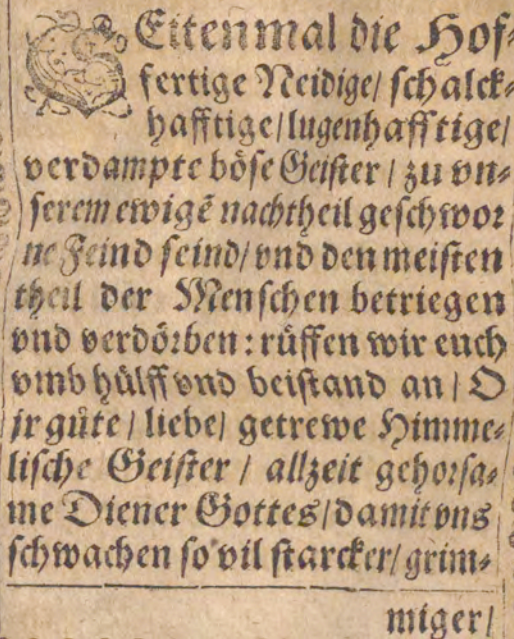 SEitenmal die Hof⸗
fertige Neidige/ ſchalck⸗
hafftige/ lugenhafftige/
verdampte böſe Geiſter / zu vn⸗
ſerem ewigẽ nachtheil geſchwor
ne Feind ſeind/ vnd den meiſten
theil der Menſchen betriegen
vnd verdörben: rüffen wir euch
vmb hülff vnd beiſtand an / O
jr gůte / liebe/ getrewe Himme⸗
liſche Geiſter / allzeit gehorſa⸗
me Diener Gottes/ damit vns
ſchwachen ſo vil ſtarcker/ grim⸗
miger/